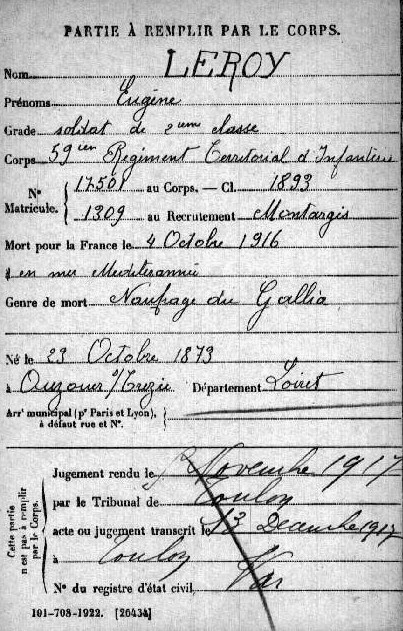 PARTIE À REMPLIR PAR LE CORPS.
Nom LEROY
Prénoms Eugène
Grade soldat de 2eme classe
Corps 59ien Régiment Territorial d'Infanterie
Nº Matricule. { 17501 au Corps. — Cl. 1893
1309 au Recrutement Montargis
Mort pour la France le 4 Octobre 1916
en mer Mediterannée
Genre de mort Naufrage du Gallia
Né le 23 Octobre 1873
à Ouzouer s/Trezée Département Loiret
Arrt municipal (pr Paris et Lyon), à défaut rue et Nº.
Cette partie n'est pas à remplir par le Corps.
Jugement rendu le Novembre 1917
par le Tribunal de Toulon
acte ou jugement transcrit le 13 Decembre 1917
à Toulon Var
Nº du registre d'état civil
101-708-1922. [26434]